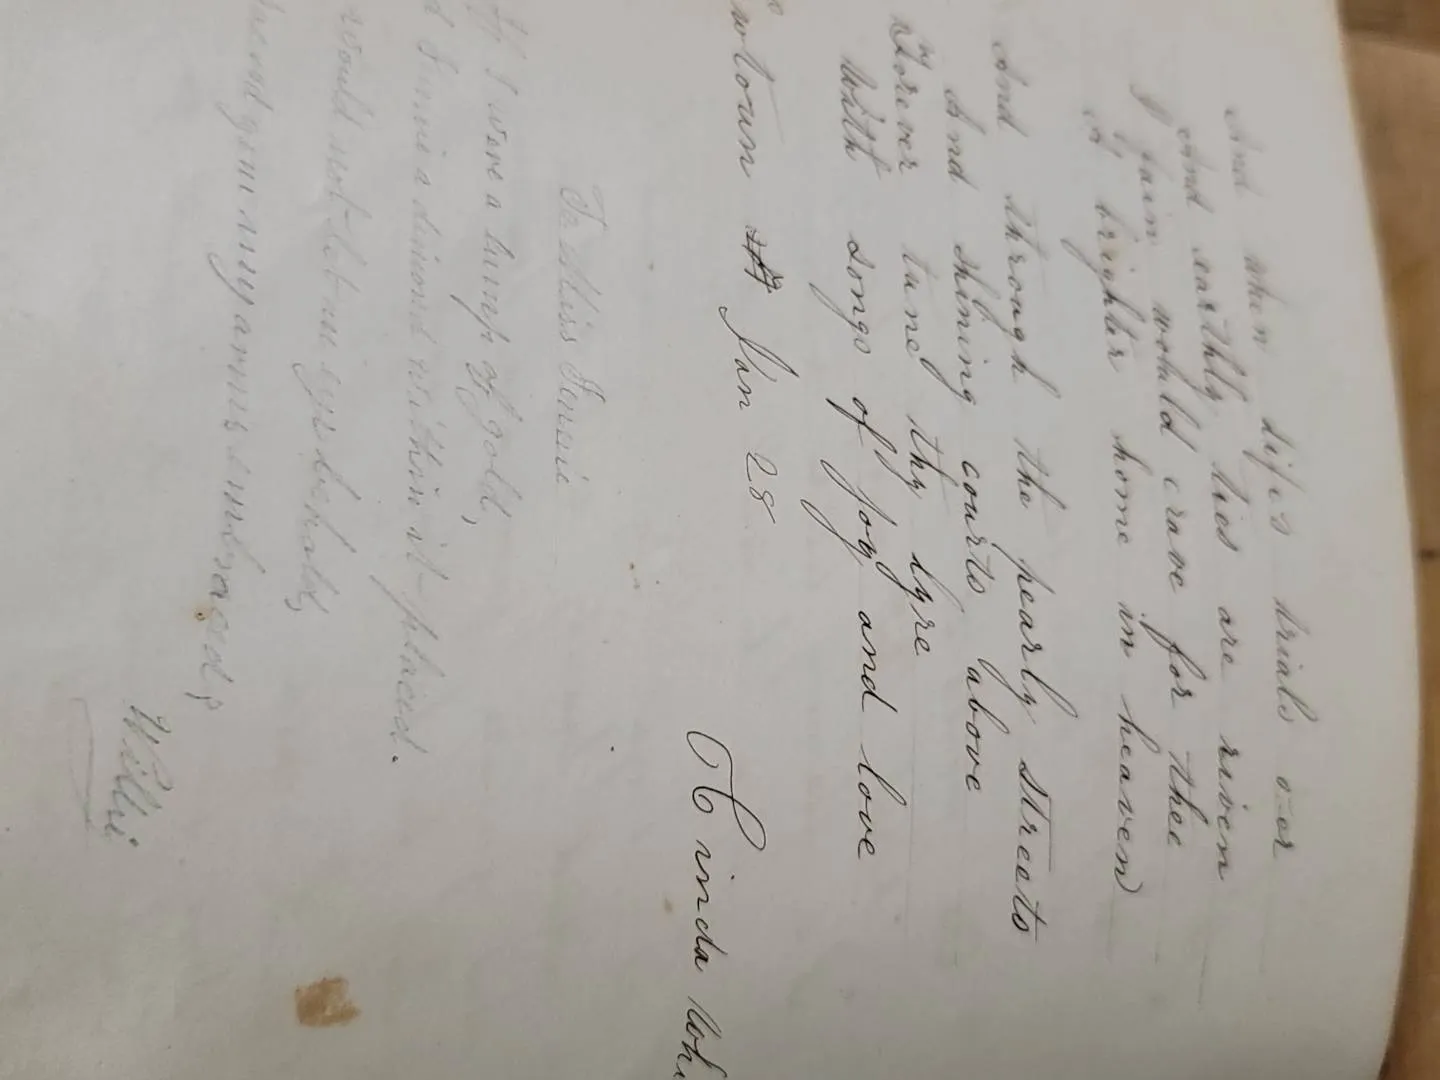 And when life's trials o-er
And earthly ties are riven
I fain would crave for thee
A brighter home in heaven
And through the pearly streets
And shining courts above
Forever tune thy lyre
With songs of joy and love
Jan 28
To Miss Jennie
If I were a lump of gold,
a dimond within it placed.
would not let
my arms embraced,
Willie